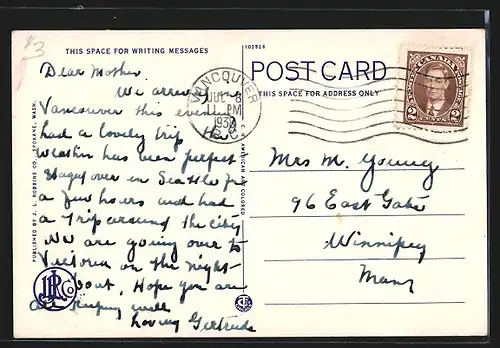 $3
THIS SPACE FOR WRITING MESSAGES
Dear Mother
We arrived
Vancouver this evening
had a lovely trip
Weather has been perfect
Stayed over in Seattle for
a few hours and had
a trip around the city
We are going over to
Victoria on the night
boat. Hope you are
all keeping well
Loving Gertrude
PUBLISHED BY J. L. ROBBINS CO. SPOKANE, WASH.
JLR Co
102526
AMERICAN
COLORED
VANCOUVER
JUL 8
PM
193
B.C.
POST CARD
THIS SPACE FOR ADDRESS ONLY
CANADA
2 2
Mrs M. Young
96 East Gate
Winnipeg
Man